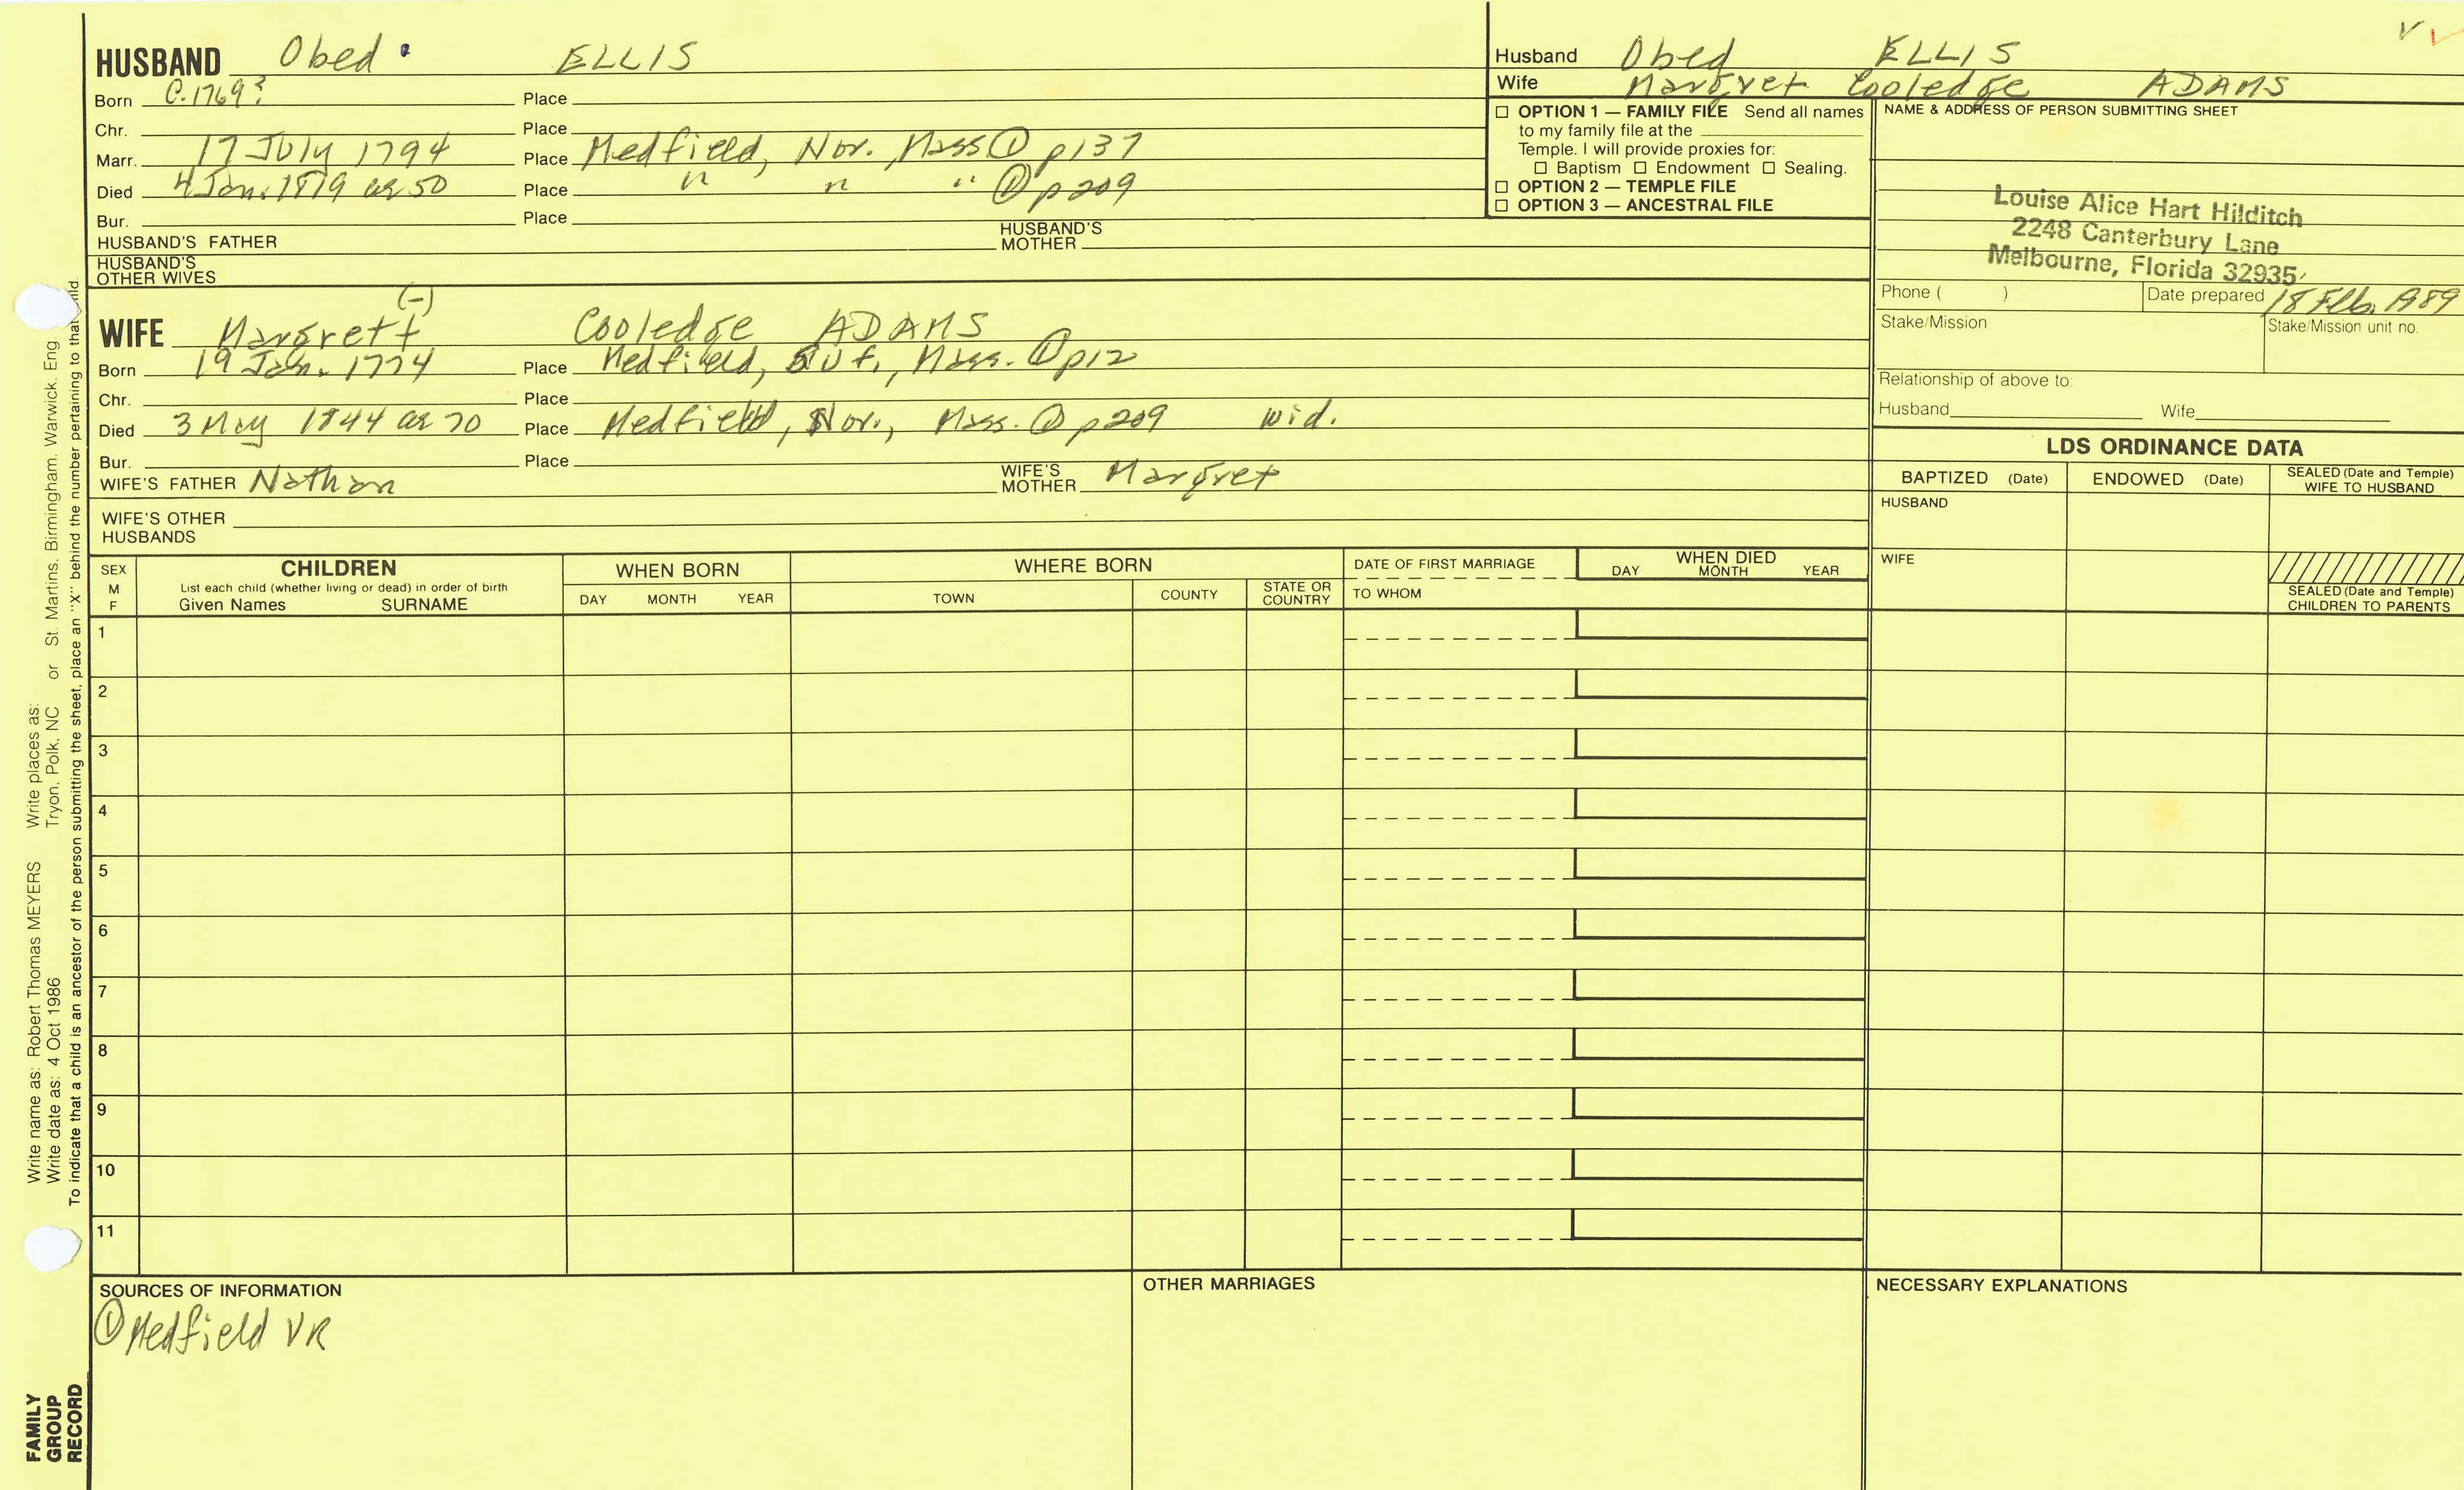 HUSBAND Obed ELLIS
Born C. 1769? Place
Chr. Place
Marr. 17 July 1794 Place Medfield, Nor., Mass ① p137
Died 4 Jan. 1819 ae 50 Place " " " ① p209
Bur. Place
HUSBAND'S FATHER HUSBAND'S MOTHER
HUSBAND'S OTHER WIVES
(-)
WIFE Margrett Cooledge ADAMS
Born 19 Jan. 1774 Place Medfield, Suf., Mass. ① p12
Chr. Place
Died 3 May 1844 ae 70 Place Medfield, Nor., Mass. ① p209 wid.
Bur. Place
WIFE'S FATHER Nathan WIFE'S MOTHER Margret
WIFE'S OTHER HUSBANDS
Husband Obed ELLIS
Wife Margret Cooledge ADAMS
☐ OPTION 1 — FAMILY FILE Send all names
to my family file at the
Temple. I will provide proxies for:
☐ Baptism ☐ Endowment ☐ Sealing.
☐ OPTION 2 — TEMPLE FILE
☐ OPTION 3 — ANCESTRAL FILE
NAME & ADDRESS OF PERSON SUBMITTING SHEET
Louise Alice Hart Hilditch
2248 Canterbury Lane
Melbourne, Florida 32935
Phone ( ) Date prepared 18 Feb. 1989
Stake/Mission Stake/Mission unit no.
Relationship of above to:
Husband Wife
LDS ORDINANCE DATA
BAPTIZED (Date) ENDOWED (Date) SEALED (Date and Temple) WIFE TO HUSBAND
HUSBAND
WIFE
SEALED (Date and Temple) CHILDREN TO PARENTS
SEX M F
CHILDREN
List each child (whether living or dead) in order of birth
Given Names SURNAME
WHEN BORN
DAY MONTH YEAR
WHERE BORN
TOWN COUNTY STATE OR COUNTRY
DATE OF FIRST MARRIAGE
TO WHOM
WHEN DIED
DAY MONTH YEAR
1
2
3
4
5
6
7
8
9
10
11
SOURCES OF INFORMATION
① Medfield VR
OTHER MARRIAGES
NECESSARY EXPLANATIONS
Write name as: Robert Thomas MEYERS Write places as:
Write date as: 4 Oct 1986 Tryon, Polk, NC or St. Martins, Birmingham, Warwick, Eng.
To indicate that a child is an ancestor of the person submitting the sheet, place an "X" behind the number pertaining to that child.
FAMILY
GROUP
RECORD